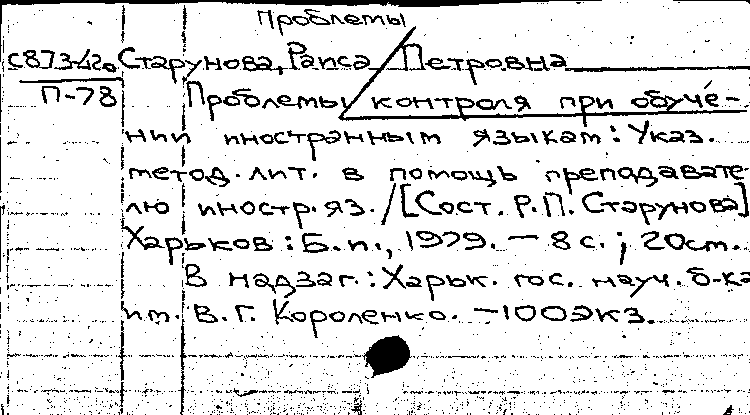 Проблемы
С873-/20 Старунова, Раиса Петровна
П-78 Проблемы контроля при обуче-
нии иностранным языкам: Указ.
метод. лит. в помощь преподавате-
лю иностр. яз. / [Сост. Р.П. Старунова]
Харьков: Б.и., 1979. – 8 с.; 20 см.
В надзаг.: Харьк. гос. науч. б-ка
им. В. Г. Короленко. – 100 экз.